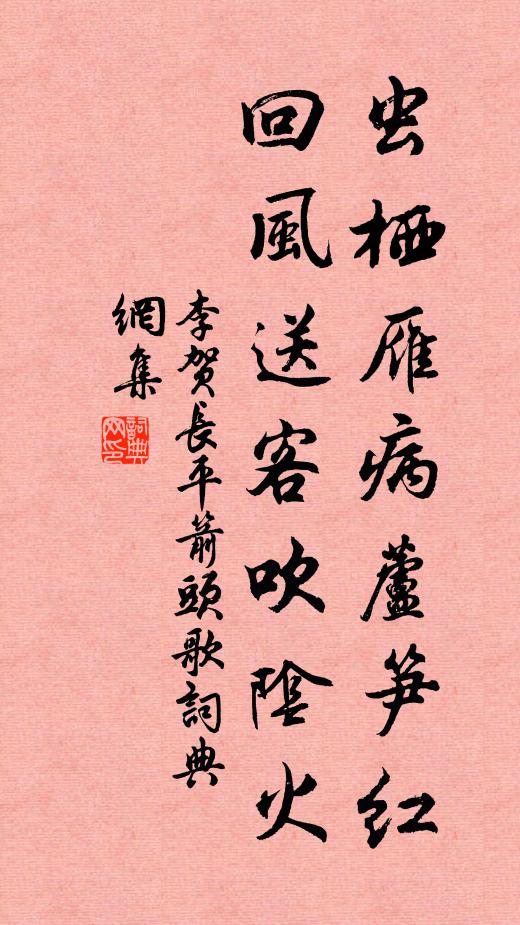 虫栖雁病蘆笋红
回風送客吹陰火
李贺長平箭頭歌詞典
網集
詞典网印